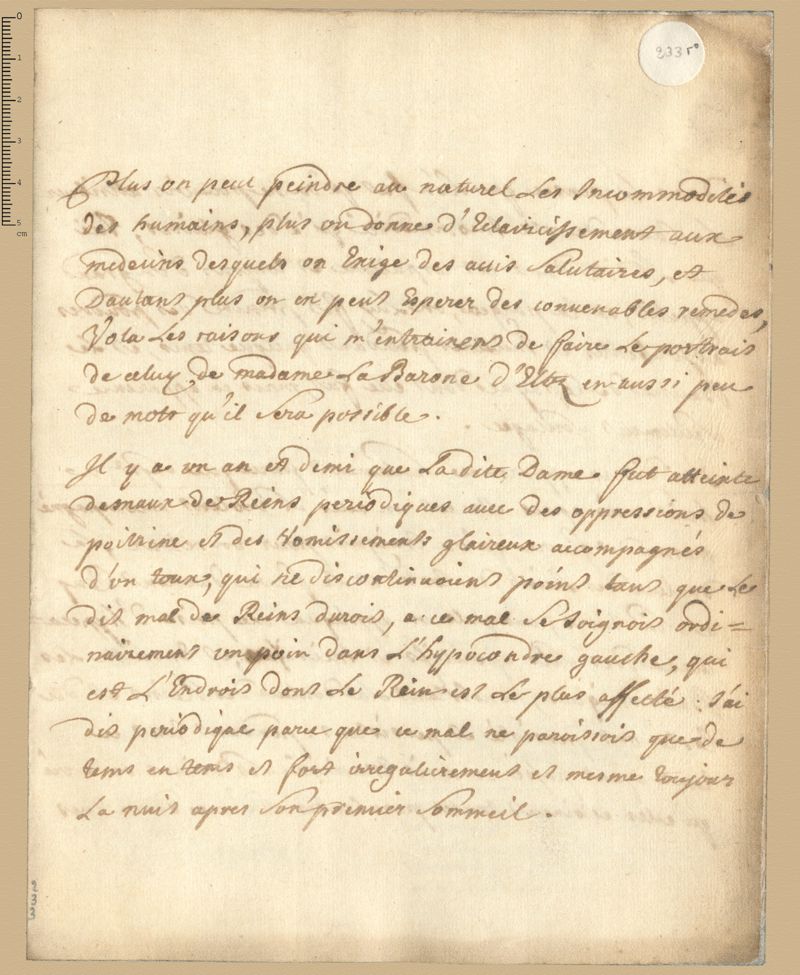 233 r°
Plus on peut peindre au naturel Les Incommodités
des humains, plus on donne d'Eclaircissement aux
medecins desquels on Exige des avis Salutaires, et
Dautant plus on en peut Esperer des convenables remedes,
Vola Les raisons qui m'entrainent de faire Le portrait
de celuy de madame La Barone d'Eltz en aussi peu
de mots qu'il Sera possible.
Il y a un an et demi que Ladite Dame fut atteinte
desmaux de Reins periodiques avec des oppressions de
poitrine et des Vomissements glaireux accompagnés
d'un toux, qui ne discontinuoient point tant que Le
dit mal de Reins duroit, a ce mal Se Joignoit ordi=
nairement un poin dans L'hypocondre gauche, qui
est L'Endroit dont Le Rein est Le plus affecté. J'ai
dit periodique parce que ce mal ne paroissoit que de
tems en tems et fort irregulierement et mesme toujour
La nuit apres Son premier Sommeil.
233
0
1
2
3
4
5
cm